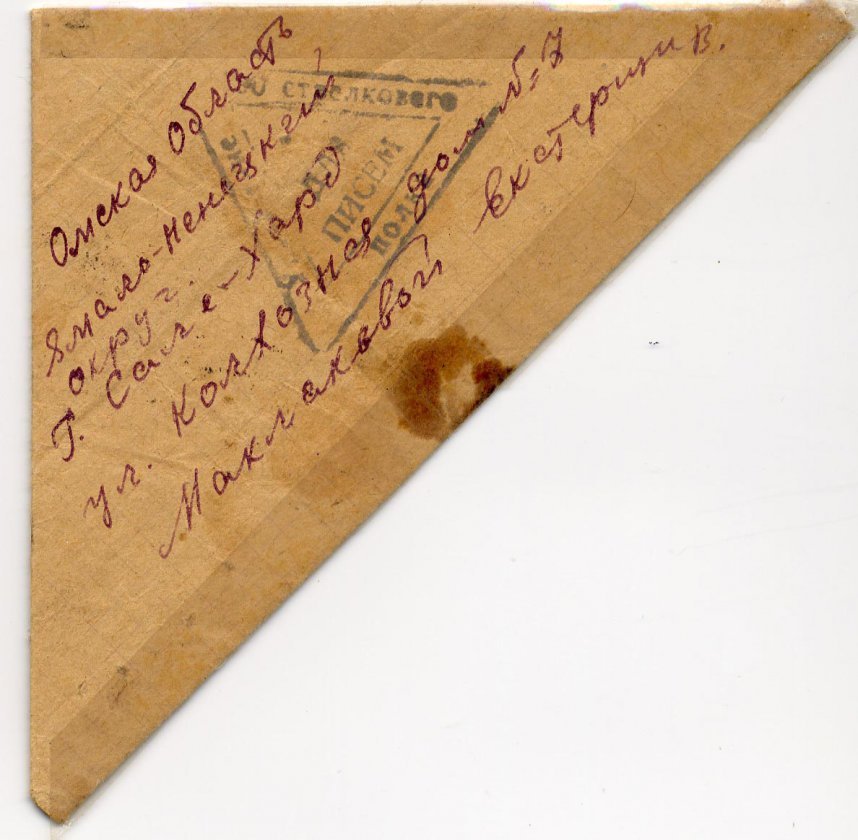 Омская Область
Ямало-Ненецкий
округ.
Г. Сале-Хард
ул. Колхозная дом №=7
Маклаковой Екстерини В.
стрелкового
для
ПИСЕМ
полк